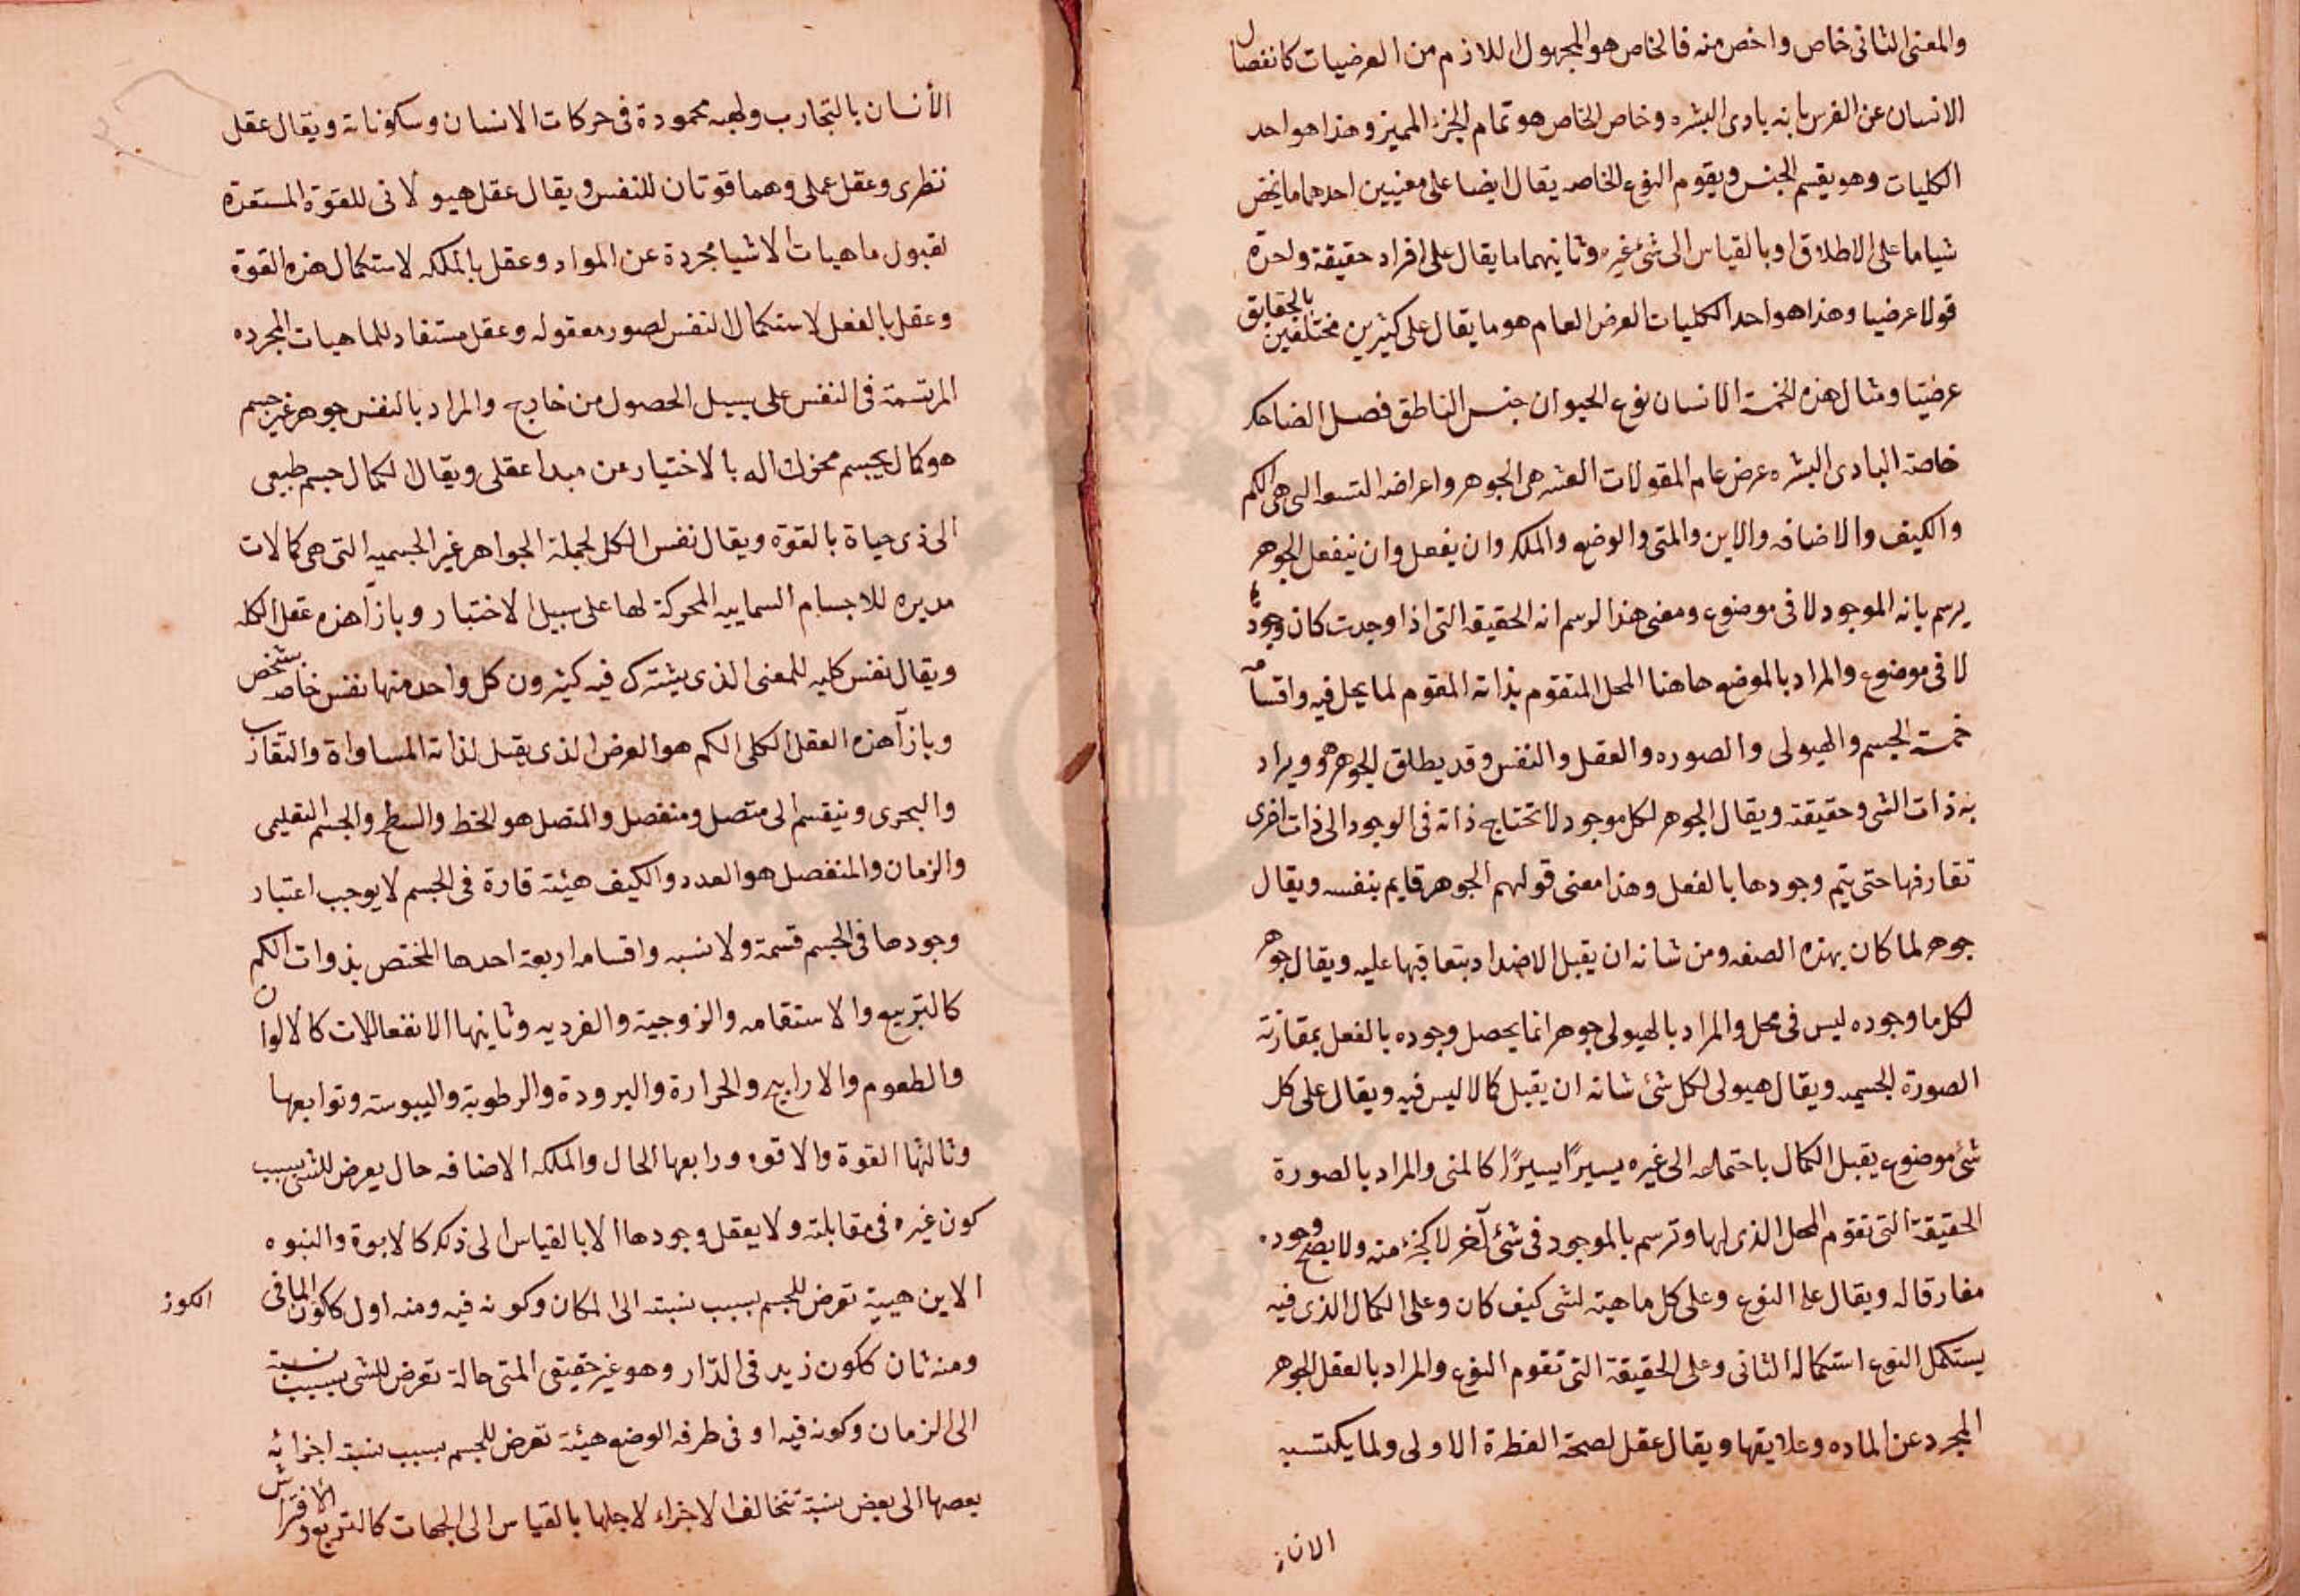 والمعنى الثانى خاص واخص منه فالخاص هو المجهول اللازم من العرضيات كانفصال
الانسان عن الفرس بانه بادى البشره وخاص الخاص هو تمام الجزء المميز وهذا هو احد
الكليات وهو يقسم الجنس ويقوم النوع الخاصه يقال ايضا على معنيين احدهما ما يخص
شيا ما على الاطلاق او بالقياس الى شئ غيره وثانيهما ما يقال على افراد حقيقة واحدة
قولا عرضيا وهذا هو احد الكليات العرض العام هو ما يقال على كثيرين مختلفين بالحقايق
عرضيا ومثال هذه الخمسة الانسان نوع الحيوان جنس الناطق فصل الضاحك
خاصة البادى البشره عرض عام المقولات العشره هى الجوهر واعراضه التسعه التى هى الكم
والكيف والاضافه والاين والمتى والوضع والملك وان يفعل وان ينفعل الجوهر
يرسم بانه الموجود لا فى موضوع ومعنى هذا الرسم انه الحقيقه التى اذا وجدت كان وجودها
لا فى موضوع والمراد بالموضع هاهنا المحل المتقوم بذاته المقوم لما يحل فيه واقسامه
خمسة الجسم والهيولى والصوره والعقل والنفس وقد يطلق الجوهر ويراد
به ذات الشى وحقيقته ويقال الجوهر لكل موجود لا تحتاج ذاته فى الوجود الى ذات اخرى
تقارفها حتى يتم وجودها بالفعل وهذا معنى قولهم الجوهر قايم بنفسه ويقال
جوهر لما كان بهذه الصفه ومن شانه ان يقبل الاضداد بتعاقبها عليه ويقال جوهر
لكل ما وجوده ليس فى محل والمراد بالهيولى جوهر انما يحصل وجوده بالفعل بمقارنة
الصورة الجسميه ويقال هيولى لكل شئ شانه ان يقبل كمالا ليس فيه ويقال على كل
شئ موضوع يقبل الكمال باحتماله الى غيره يسيرًا يسيرًا كالمنى والمراد بالصورة
الحقيقة التى تقوم المحل الذى لها وترسم بالموجود فى شئ آخر لا كجزء منه ولا يصح وجوده
مفارقا له ويقال على النوع وعلى كل ماهية لشى كيف كان وعلى الكمال الذى فيه
يستكمل النوع استكماله الثانى وعلى الحقيقة التى تقوم النوع والمراد بالعقل الجوهر
المجرد عن الماده وعلايقها ويقال عقل لصحة الفطرة الاولى ولما يكتسبه
الأنسان بالتجارب ولهيه محمودة فى حركات الانسان وسكوناته ويقال عقل
نظرى وعقل عملى وهما قوتان للنفس ويقال عقل هيولانى للقوة المستعدة
لقبول ماهيات الاشيا مجردة عن المواد وعقل بالملكه لاستكمال هذه القوة
وعقل بالفعل لاستكمال النفس لصور معقوله وعقل مستفاد للماهيات المجرده
المرتسمة فى النفس على سبيل الحصول من خارج والمراد بالنفس جوهر غير جسم
هو كمال لجسم محرك اله بالاختيار عن مبدا عقلى ويقال الكمال جسم طبيعى
الى ذى حياة بالقوة ويقال نفس الكل لجملة الجواهر غير الجسميه التى هى كمالات
مدبره للاجسام السماييه المحركة لها على سبيل الاختيار وبازآ هذه عقل الكل
ويقال نفس كليه للمعنى الذى يشترك فيه كثيرون كل واحد منها نفس خاصه بشخص
وبازآ هذه العقل الكلى الكم هو العرض الذى يقبل لذاته المساواة والتقارب
والبحرى وينقسم الى متصل ومنفصل والمتصل هو الخط والسطح والجسم التعليمى
والزمان والمنفصل هو العدد والكيف هيئة قارة فى الجسم لا يوجب اعتبار
وجودها فى الجسم قسمة ولا نسبه واقسامه اربعة احدها المختص بذوات الكم
كالتربيع والاستقامه والزوجية والفرديه وثانيها الانفعاللات كالالوان
والطعوم والاراييح والحرارة والبرودة والرطوبة واليبوسة وتوابعها
وثالثها القوة والاقوه ورابعها الحال والملكه الاضافه حال يعرض للشى بسبب
كون غيره فى مقابلته ولا يعقل وجودها الا بالقياس الى ذلك كالابوة والبنوه
الاين هيية تعرض للجسم بسبب نسبته الى المكان وكونه فيه ومنه اول ككون الما فى
الكوز
ومنه ثان ككون زيد فى الدّار وهو غير حقيقى المتى حالة تعرض للشى بسبب نسبة
الى الزمان وكونه فيه او فى طرفه الوضع هيئة تعرض للجسم بسبب نسبة اجزائه
بعضها الى بعض نسبة تتخالف الاجزاء لاجلها بالقياس الى الجهات كالتربع والافتراش